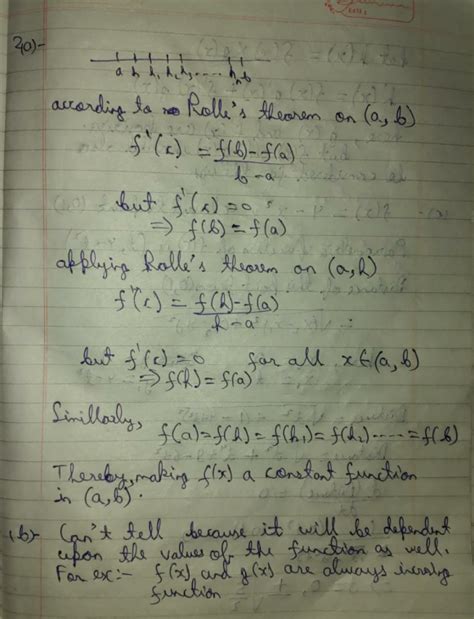 2(a)-
a h h₁ h₂ h₃ ...... hₙ b
according to Rolle's theorem on (a, b)
f'(x) = f(b)-f(a)
b-a
but f'(x) = 0
⇒ f(b) = f(a)
applying Rolle's theorem on (a, h)
f'(x) = f(h)-f(a)
h-a
but f'(x) = 0 for all x∈(a, b)
⇒ f(h) = f(a)
Similarly,
f(a) = f(h) = f(h₁) = f(h₂) ..... = f(b)
Thereby, making f(x) a constant function
in (a, b).
(b)- Can't tell because it will be dependent
upon the values of the function as well.
For ex:- f(x) and g(x) are always
function